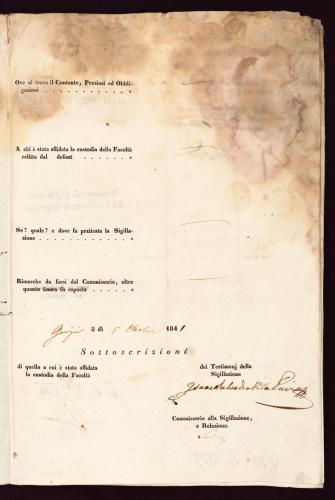 Ove si trova il Contante, Preziosi ed Obbli-
gazioni . . . . . . . . . . . «
A chi è stata affidata la custodia della Facoltà
relitta dal defont . . . . . . . «
Se? quale? e dove fu praticata la Sigilla-
zione . . . . . . . . . . . . «
Rimarche da farsi dal Commissario, oltre
quanto finora fu esposto . . . . . «
il dì 5 Ottobre 1841
Sottoscrizioni
di quello a cui è stata affidata
la custodia della Facoltà
dei Testimonj della
Sigillazione
Commissario alla Sigillazione,
e Relazione.